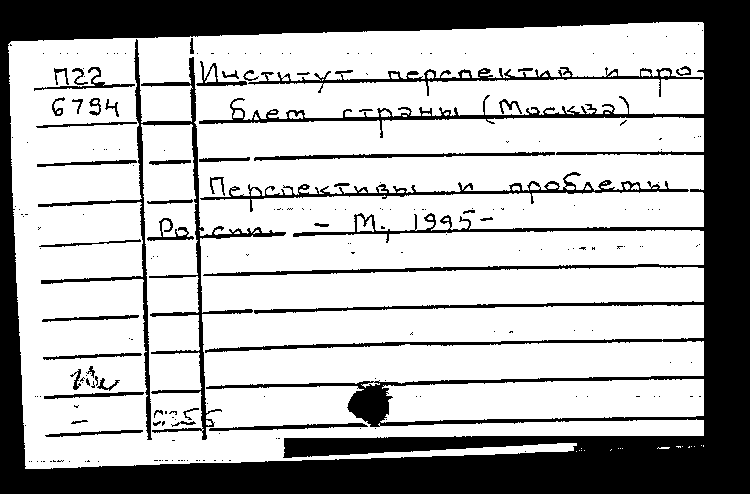 П22 Институт перспектив и про-
6794 блем страны (Москва)
Перспективы и проблемы
России. - М., 1995-
-